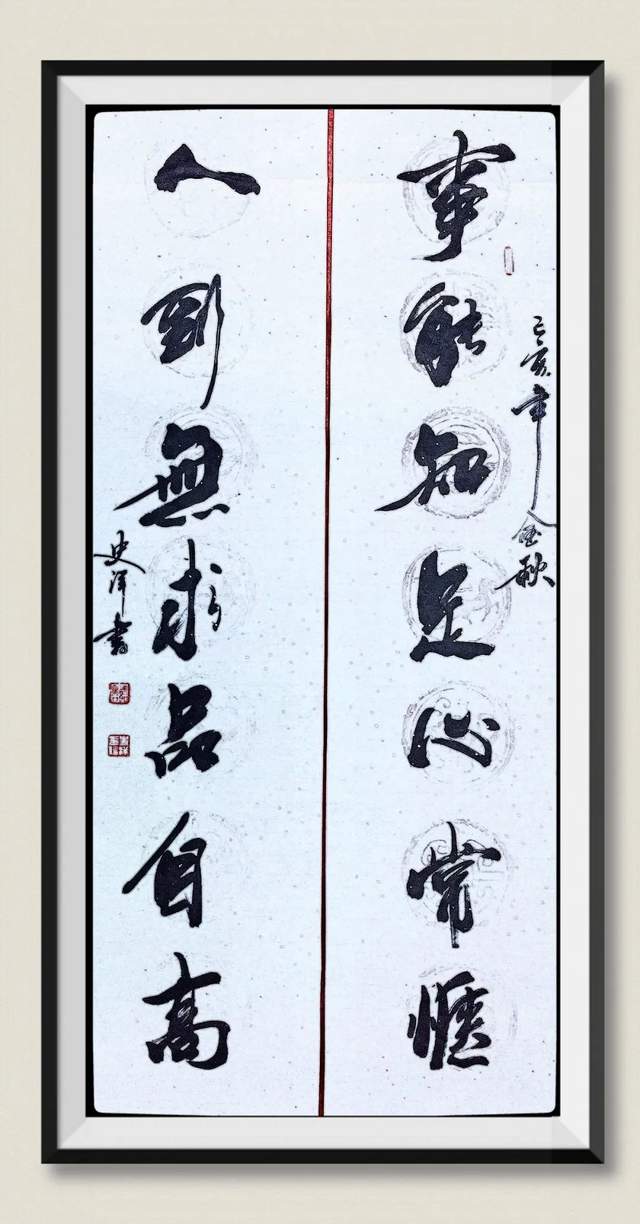 己亥年金秋
事能知足心常惬
人到無求品自高
史洋書